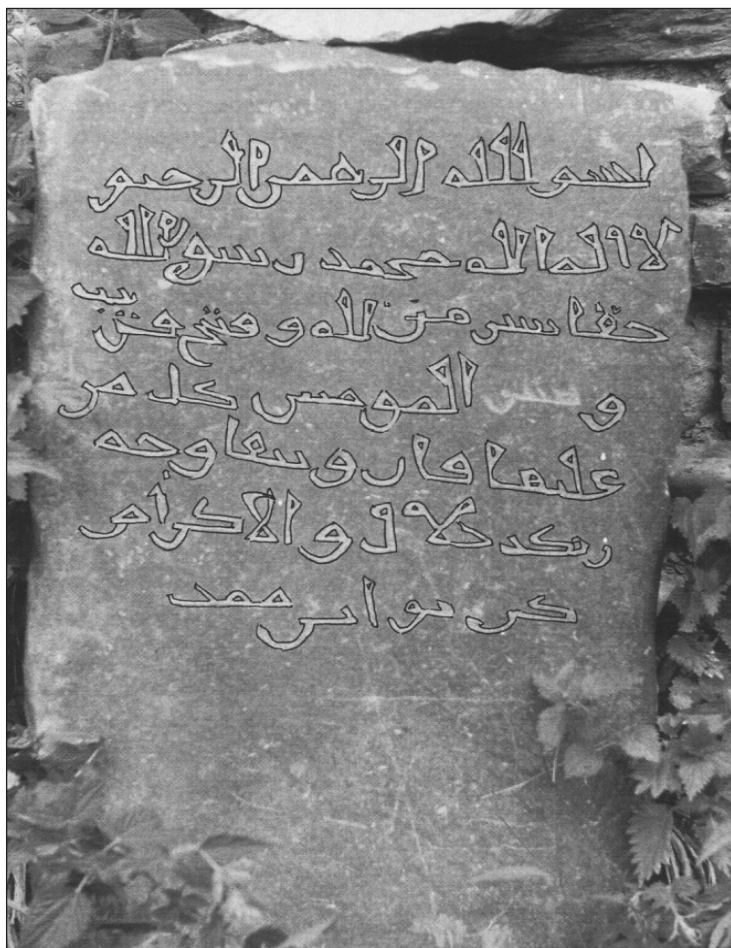 بسم الله الرحمن الرحيم
لا اله الا الله محمد رسول الله
حقا نصر من الله و فتح قريب
و بشر المومنين كل من
عليها فان و يبقا وجه
ربك د جلال و الاكرام
ابن